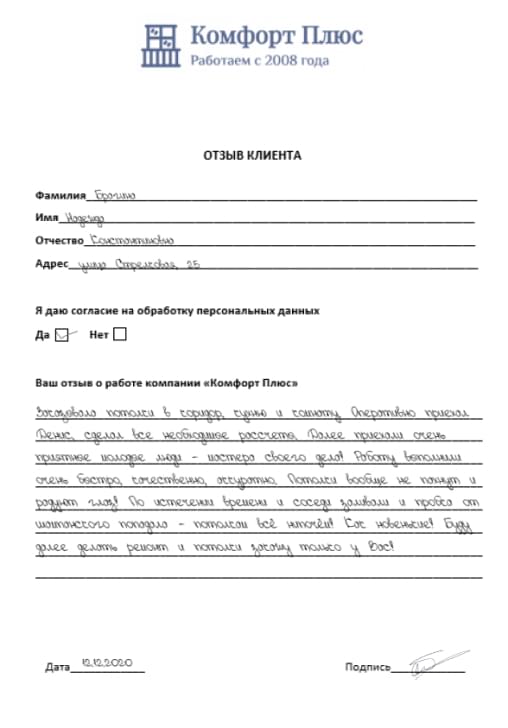 Комфорт Плюс
Работаем с 2008 года
ОТЗЫВ КЛИЕНТА
Фамилия Брагина
Имя Надежда
Отчество Константиновна
Адрес улица Стрелковая, 25
Я даю согласие на обработку персональных данных
Да Нет
Ваш отзыв о работе компании «Комфорт Плюс»
Заказывала потолки в коридор, кухню и комнату. Оперативно приехал
Денис, сделал все необходимое рассчета. Далее приехали очень
приятное молодое люди - мастера своего дела! Работу выполнили
очень быстро, качественно, аккуратно. Потолки вообще не пахнут и
радуют глаз! По истечении времени и соседи заливали и пробка от
шампанского попадала - потолкам всё нипочём! Как новенькие! Буду
далее делать ремонт и потолки закажу только у Вас!
Дата 12.12.2020 Подпись